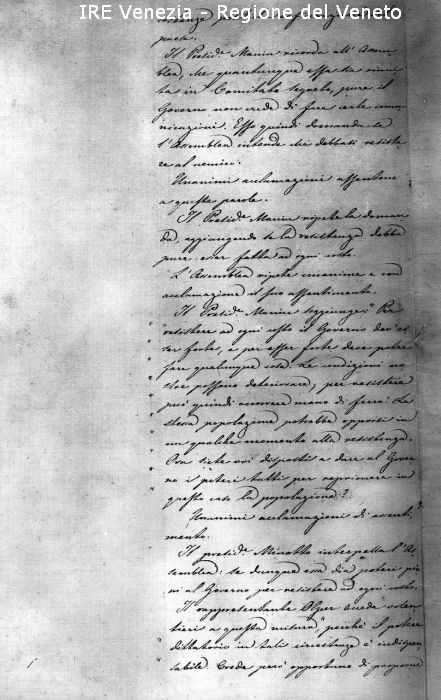 IRE Venezia - Regione del Veneto
pace.
Il Presid.e Manin ricorda all' Assem-
blea, che quantunque essa sia riuni-
ta in Comitato segreto, pure il
Governo non crede di fare certe comu-
nicazioni. Esso quindi domanda se
l'Assemblea intenda che debbasi resiste-
re al nemico.
Unanimi acclamazioni assentono
a queste parole.
Il Presid.e Manin ripete la doman-
da, aggiungendo se la resistenza debba
pure esser fatta ad ogni costo.
L'Assemblea ripete unanime e con
acclamazione il suo assentimento.
Il Presid.e Manin soggiunge: " Per
" resistere ad ogni costo il Governo dev'es-
" ser forte, e per esser forte deve poter
" fare qualunque cosa. Le condizioni no-
" stre possono deteriorare, per resistere
" può quindi occorrere mano di ferro: La
" stessa popolazione potrebbe opporsi in
" un qualche momento alla resistenza.
" Ora siete voi disposti a dare al Gover-
" no i poteri tutti per reprimere in
" questo caso la popolazione?
Unanimi acclamazioni di assenti-
mento.
Il presid.e Minotto interpella l'As-
semblea: se dunque essa dia poteri pie-
ni al Governo per resistere ad ogni costo.
Il rappresentante Olper accede volen-
tieri a questa misura, perchè il potere
dittatorio in tali circostanze è indispen-
sabile. Crede però opportuno di proporre